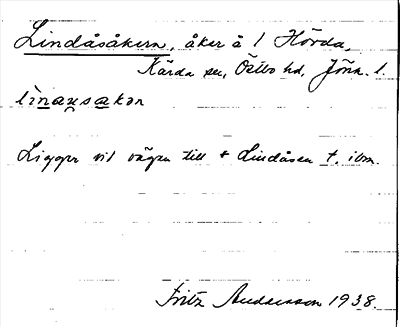 Lindåsåkern, åker å 1 Hörda,
Kärda sn, Östbo hd, Jönk. l.
Ligger vid vägen till + Lindåsen t. ibm.
Fritz Andersson 1938.